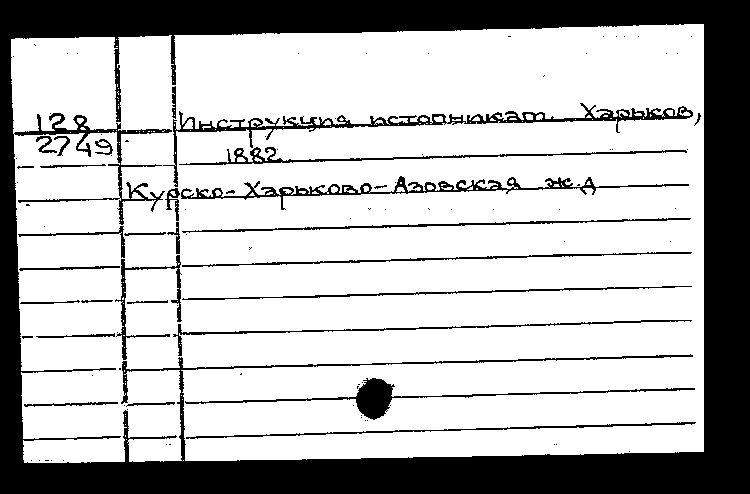 128
2749
Инструкция истопникам. Харьков,
1882
Курско-Харьково-Азовская ж.д